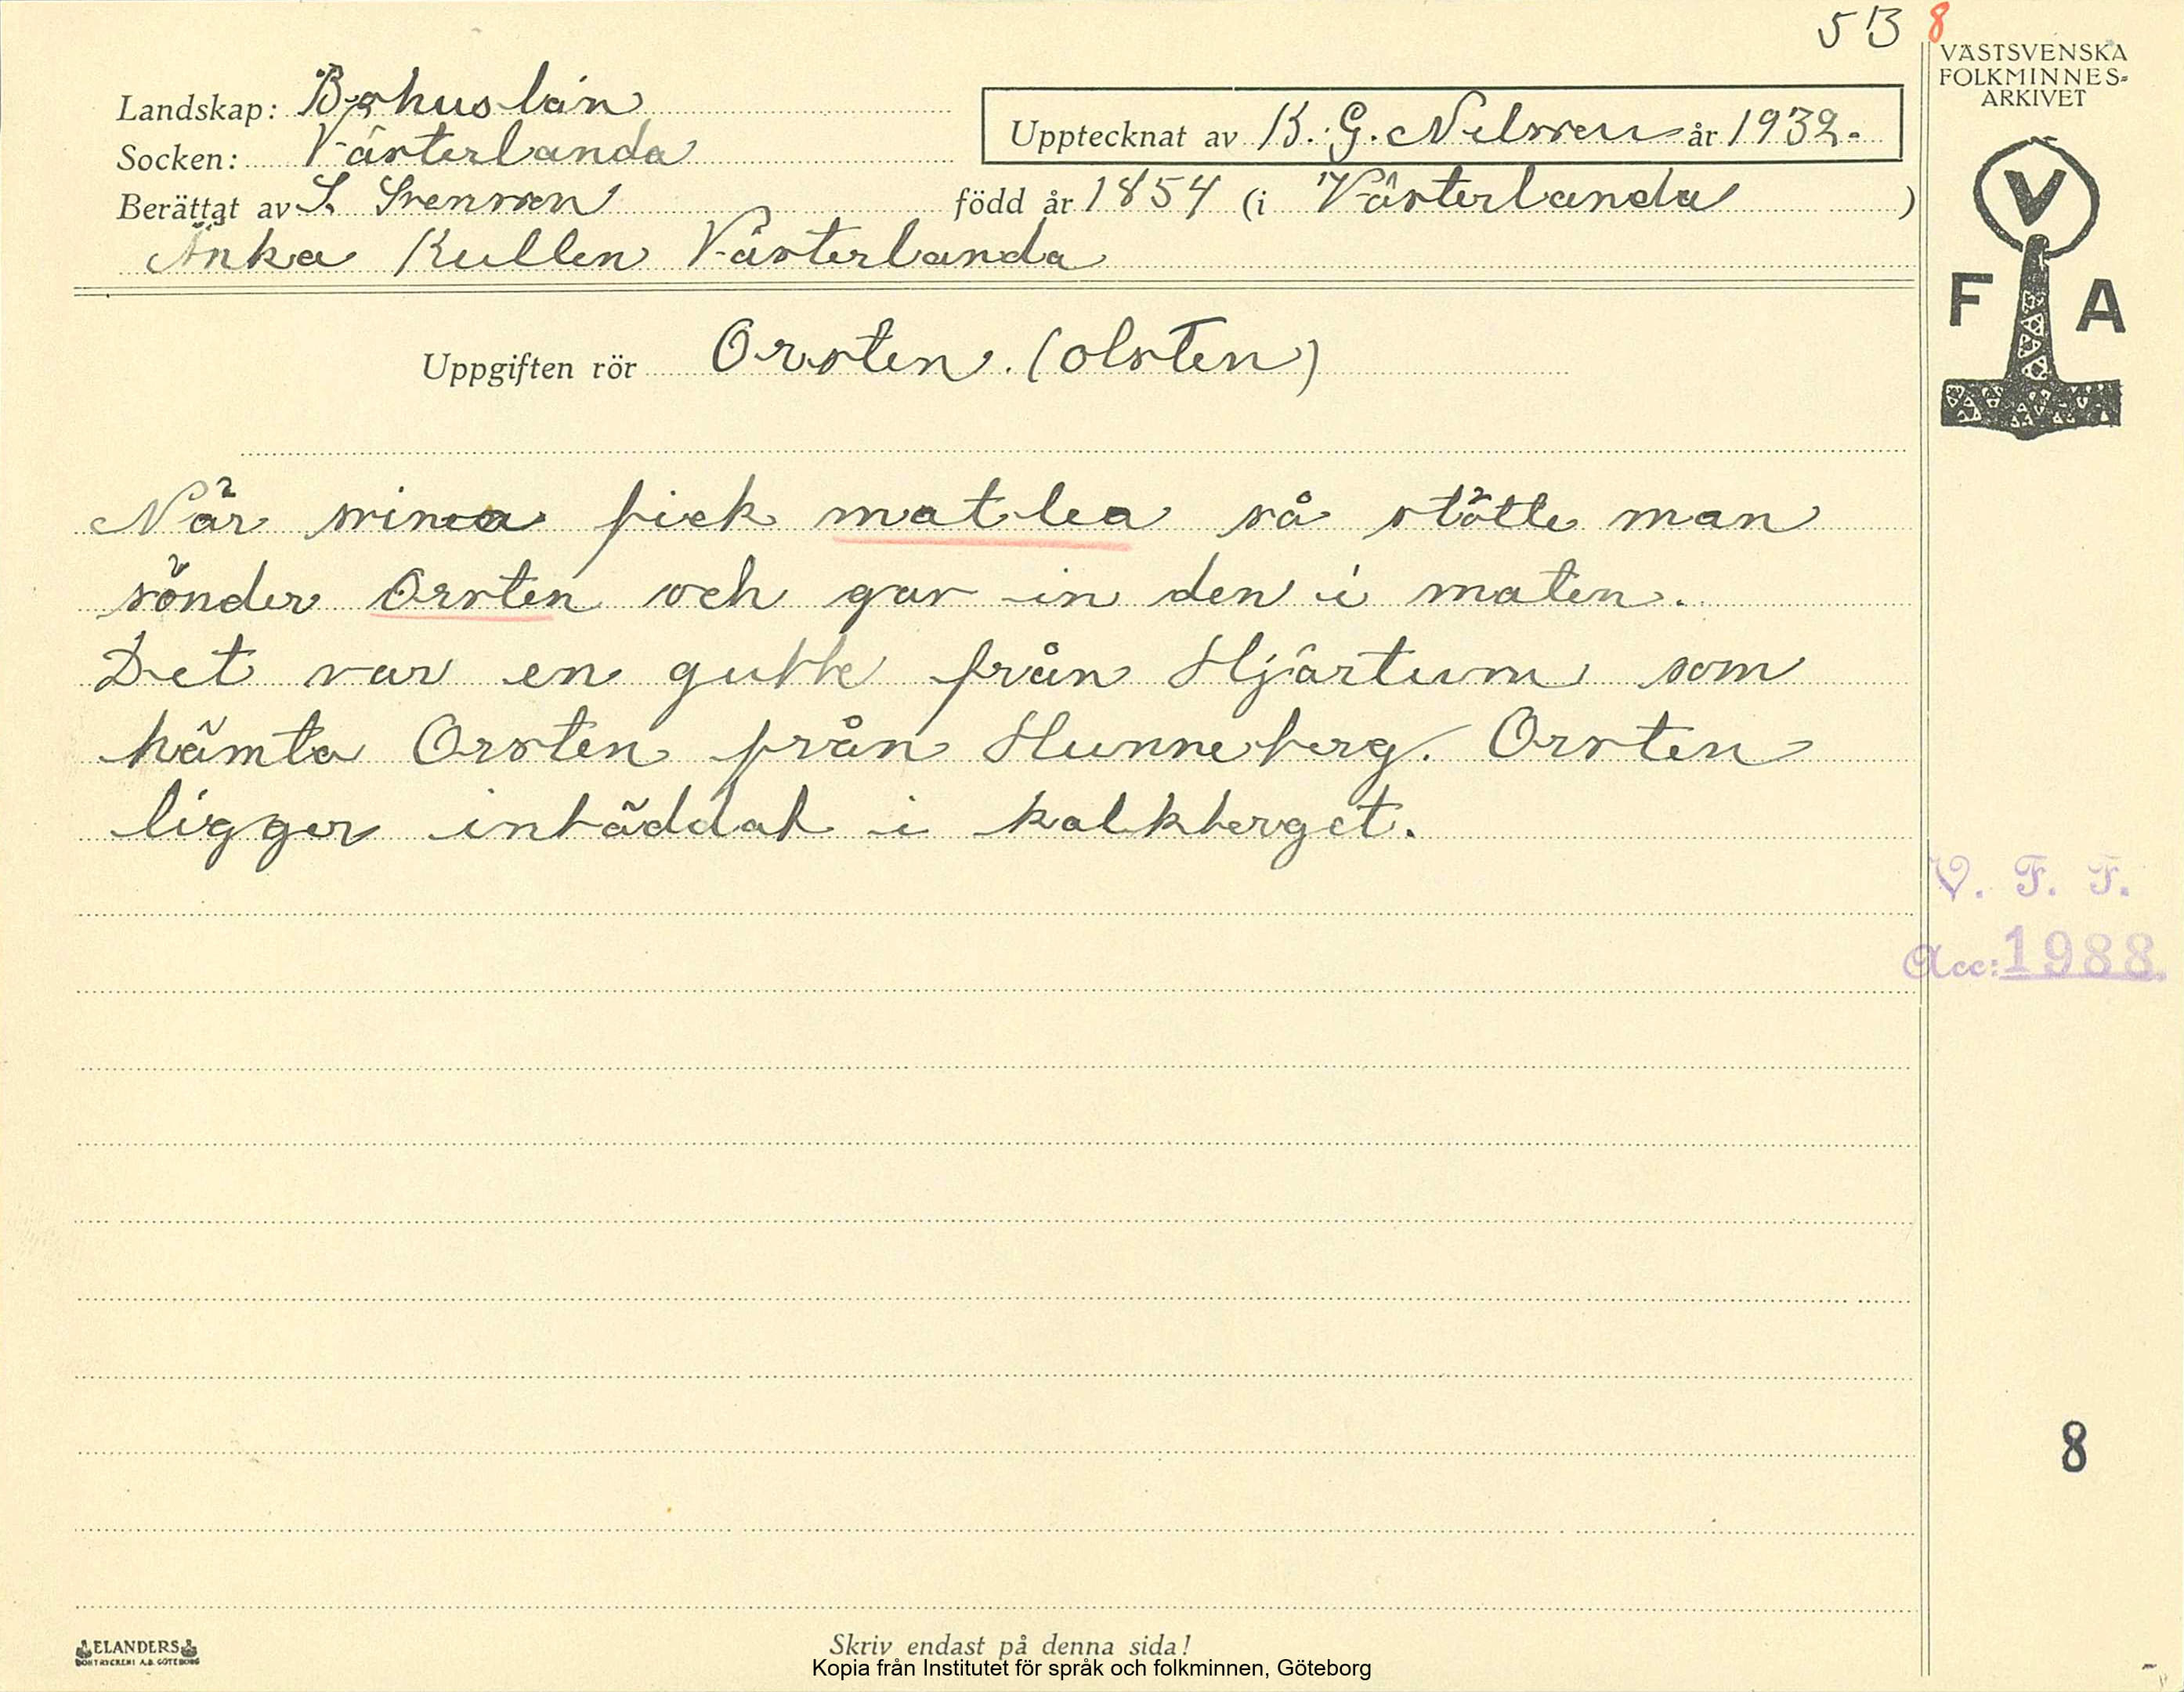 5B 8
VÄSTSVENSKA
FOLKMINNES-
ARKIVET
Landskap: Bohuslän
Upptecknat av K. G. Nilsson år 1932.
Socken: Västerlanda
Berättat av S. Svensson född år 1854 (i Västerlanda )
Änka Kullen Västerlanda
V
F A
Uppgiften rör Orsten. (olsten)
När svina fick matlea så stötte man
sönder Orsten och gav in den i maten.
Det var en gubbe från Hjärtum som
hämta Orsten från Hunneberg. Orsten
ligger inbäddat i kalkberget.
V. F. F.
Acc: 1988.
8
ELANDERS
BOKTRYCKERI A.B. GÖTEBORG
Skriv endast på denna sida!
Kopia från Institutet för språk och folkminnen, Göteborg